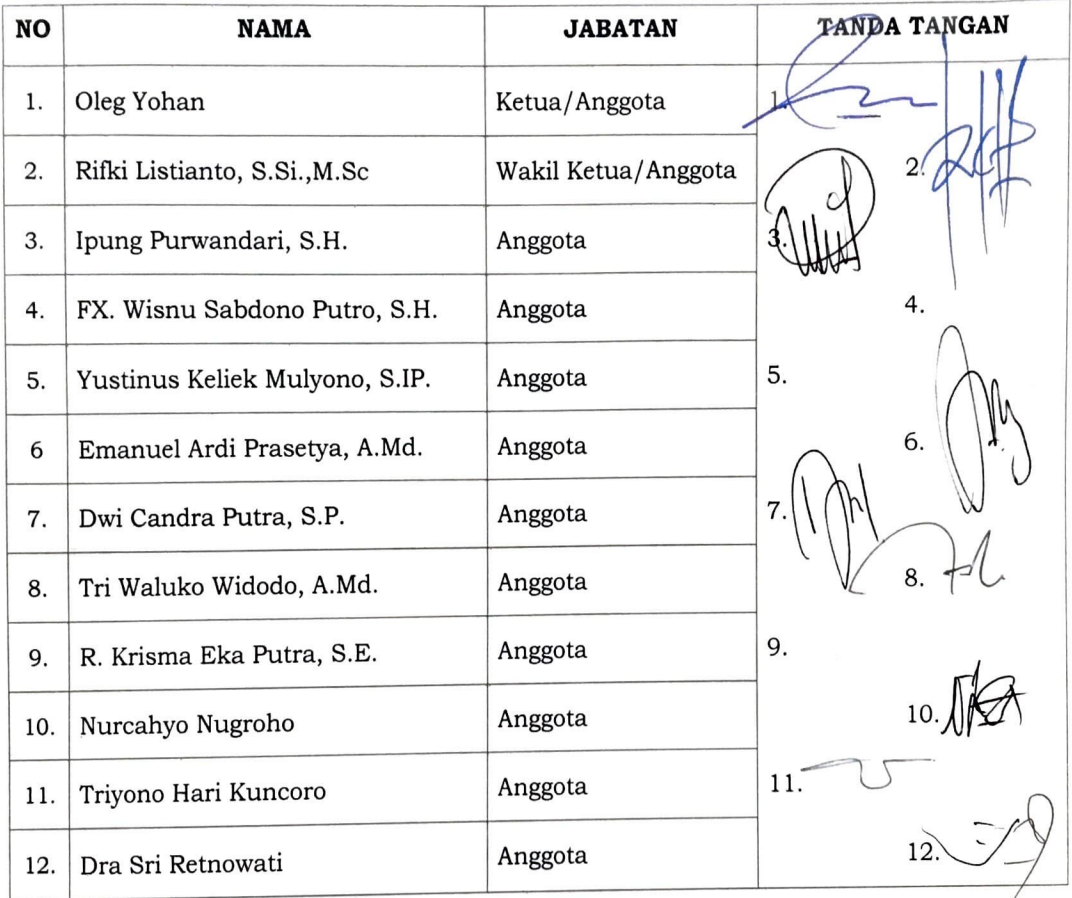 NO NAMA JABATAN TANDA TANGAN
1. Oleg Yohan Ketua/Anggota 1.
2. Rifki Listianto, S.Si.,M.Sc Wakil Ketua/Anggota 2.
3. Ipung Purwandari, S.H. Anggota 3.
4. FX. Wisnu Sabdono Putro, S.H. Anggota 4.
5. Yustinus Keliek Mulyono, S.IP. Anggota 5.
6 Emanuel Ardi Prasetya, A.Md. Anggota 6.
7. Dwi Candra Putra, S.P. Anggota 7.
8. Tri Waluko Widodo, A.Md. Anggota 8.
9. R. Krisma Eka Putra, S.E. Anggota 9.
10. Nurcahyo Nugroho Anggota 10.
11. Triyono Hari Kuncoro Anggota 11.
12. Dra Sri Retnowati Anggota 12.